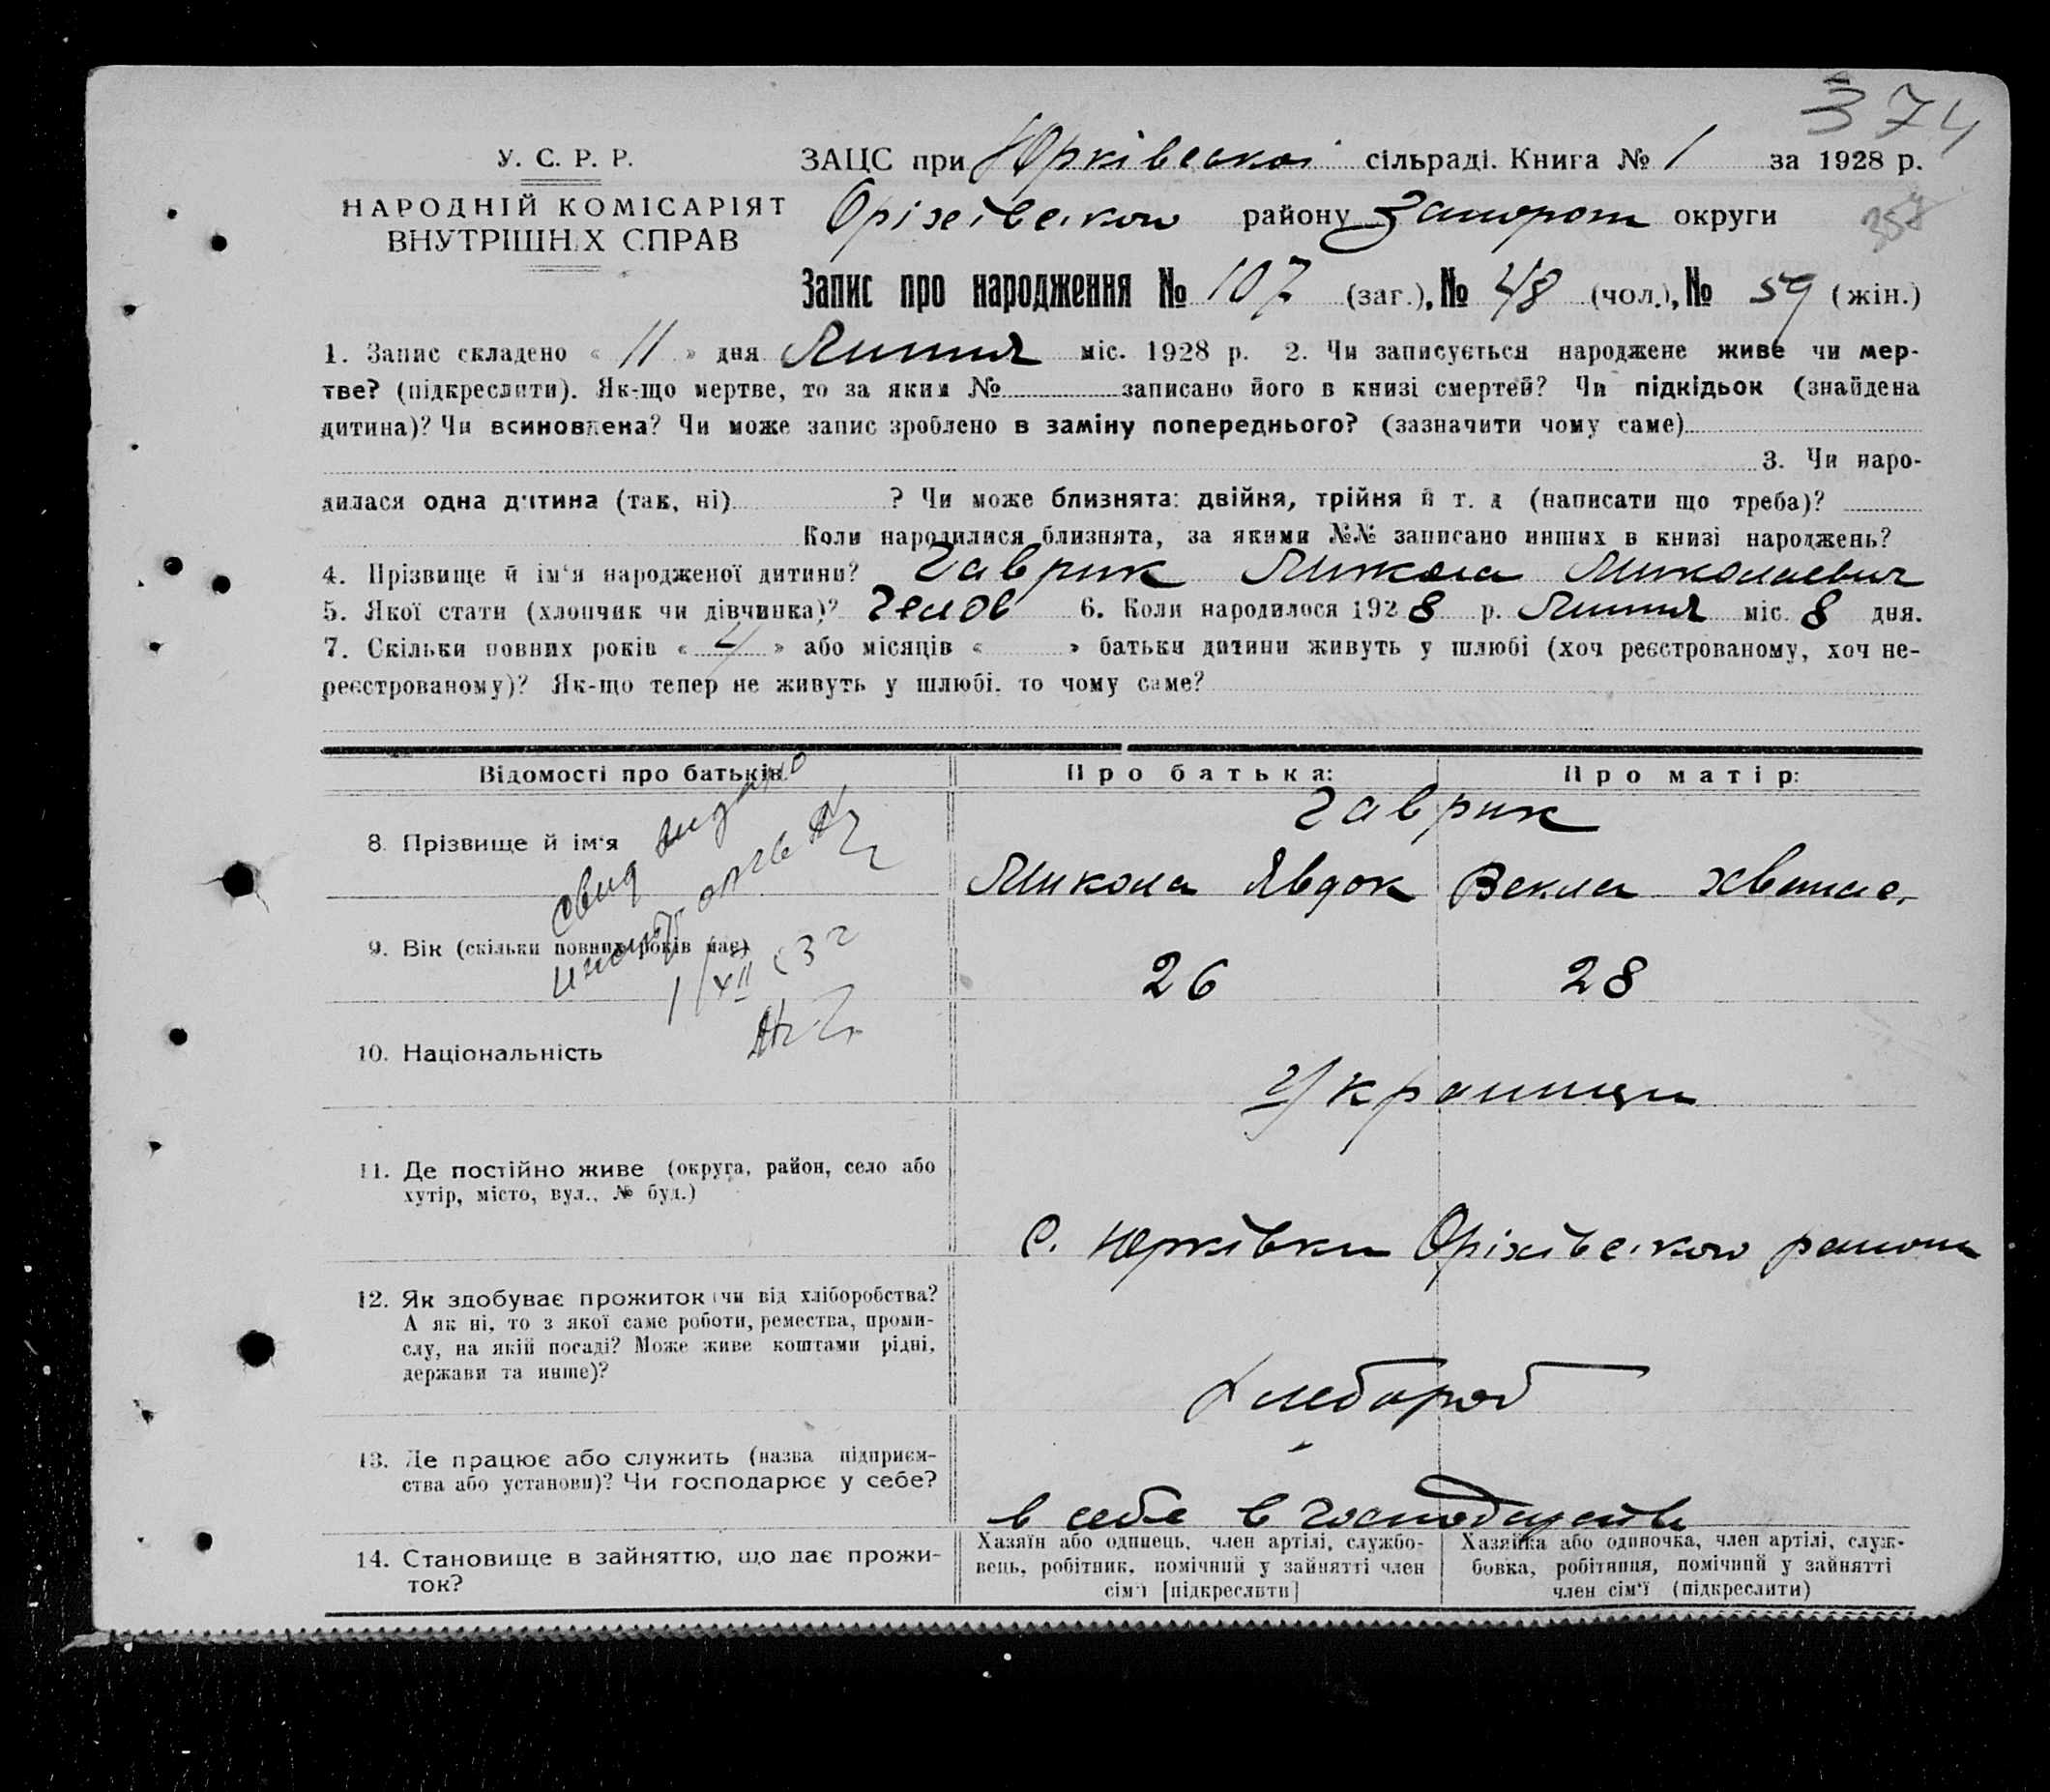 374
У. С. Р. Р.
НАРОДНІЙ КОМІСАРІЯТ
ВНУТРІШНІХ СПРАВ
ЗАЦС при Юрківської сільраді. Книга № 1 за 1928 р.
Оріхівского району Запорож округи
Запис про народження № 107 (заг.), № 48 (чол.), № 59 (жін.)
1. Запис складено « 11 » дня Липня міс. 1928 р. 2. Чи записується народжене живе чи мер-
тве? (підкреслити). Як-що мертве, то за яким № записано його в книзі смертей? Чи підкідьок (знайдена
дитина)? Чи всиновлена? Чи може запис зроблено в заміну попереднього? (зазначити чому саме)
3. Чи наро-
дилася одна дитина (так, ні) ? Чи може близнята: двійня, трійня й т. д (написати що треба)?
Коли народилися близнята, за якими №№ записано инших в книзі народжень?
4. Прізвище й ім'я народженої дитини? Гаврик Микола Миколаевич
5. Якої стати (хлопчик чи дівчинка)? Чолов 6. Коли народилося 1928 р. Липня міс. 8 дня.
7. Скільки повних років « 4 » або місяців « » батьки дитини живуть у шлюбі (хоч реєстрованому, хоч не-
реєстрованому)? Як-що тепер не живуть у шлюбі, то чому саме?
Відомості про батьків: Про батька: Про матір:
Гаврик
8. Прізвище й ім'я Микола Явдок Векла Хвенас.
свид видано
1/XII
9. Вік (скільки повних років має) 26 28
10. Національність Українци
11. Де постійно живе (округа, район, село або
хутір, місто, вул., № буд.)
С. Юрківки Оріхівского района
12. Як здобуває прожиток (чи від хліборобства?
А як ні, то з якої саме роботи, ремества, проми-
слу, на якій посаді? Може живе коштами рідні,
держави та инше)?
Хлебороб
13. Де працює або служить (назва підприєм-
ства або установи)? Чи господарює у себе?
в себе в господарстве
14. Становище в зайняттю, що дає прожи-
ток?
Хазяїн або одинець, член артілі, службо-
вець, робітник, помічний у зайнятті член
сім'ї [підкреслити]
Хазяйка або одиночка, член артілі, служ-
бовка, робітниця, помічний у зайнятті
член сім'ї (підкреслити)